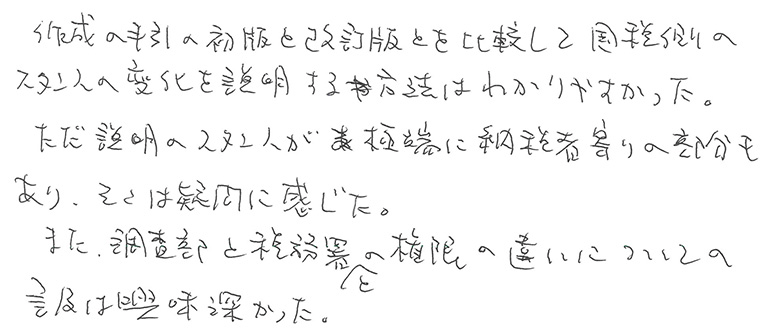 作成の手引の初版と改訂版とを比較して国税側の
スタンスの変化を説明する方法はわかりやすかった。
ただ説明のスタンスが極端に納税者寄りの部分も
あり、そこは疑問に感じた。
また、調査部と税務署との権限の違いについての
言及は興味深かった。